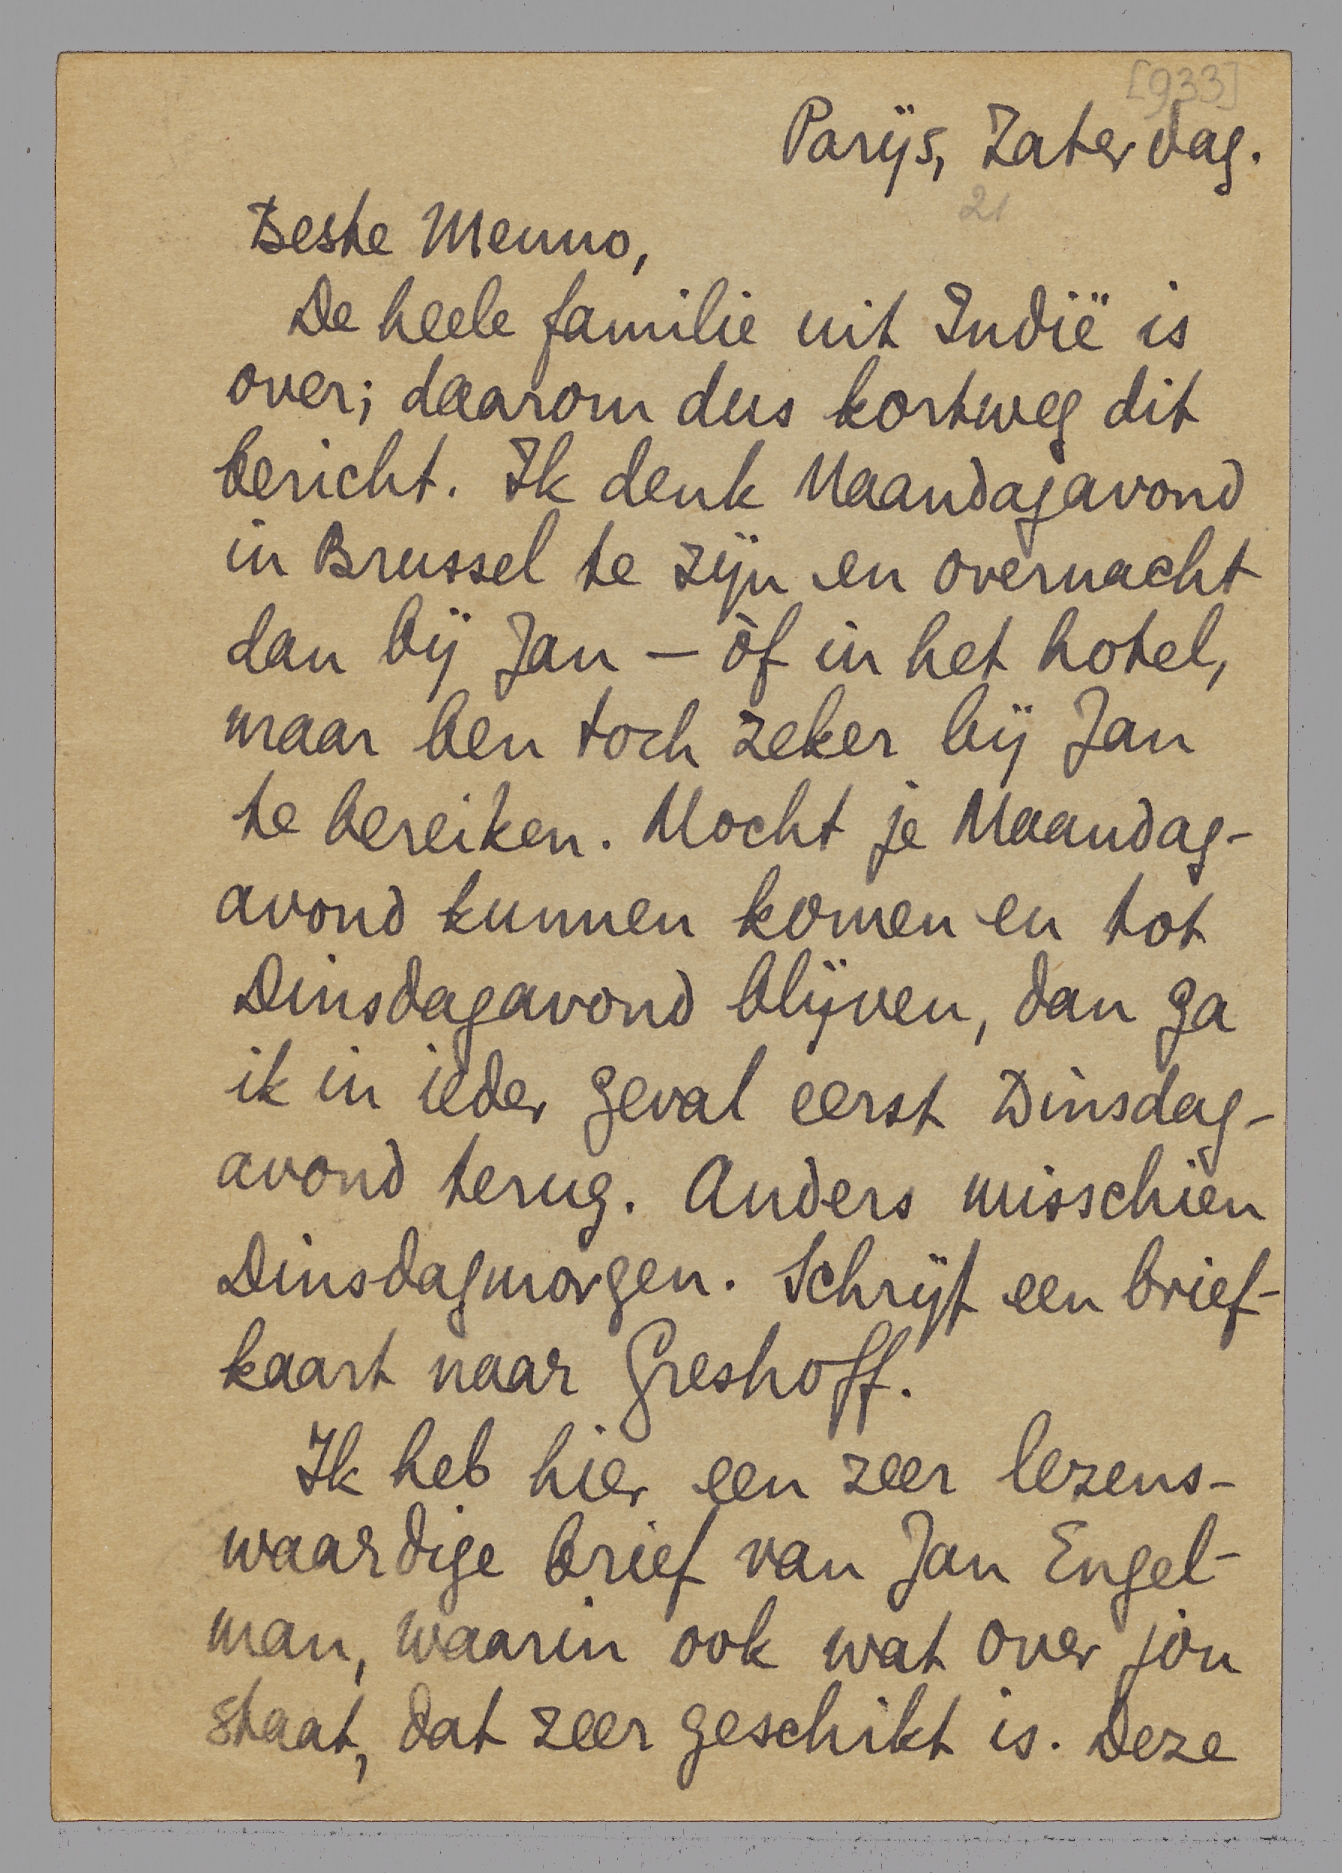 [933]
Parijs, Zaterdag.
21
Beste Menno,
De heele familie uit Indië is
over; daarom dus kortweg dit
bericht. Ik denk Maandagavond
in Brussel te zijn en overnacht
dan bij Jan – òf in het hotel,
maar ben toch zeker bij Jan
te bereiken. Mocht je Maandag-
avond kunnen komen en tot
Dinsdagavond blijven, dan ga
ik in ieder geval eerst Dinsdag-
avond terug. Anders misschien
Dinsdagmorgen. Schrijf een brief-
kaart naar Greshoff.
Ik heb hier een zeer lezens-
waardige brief van Jan Engel-
man, waarin ook wat over jou
staat, dat zeer geschikt is. Deze